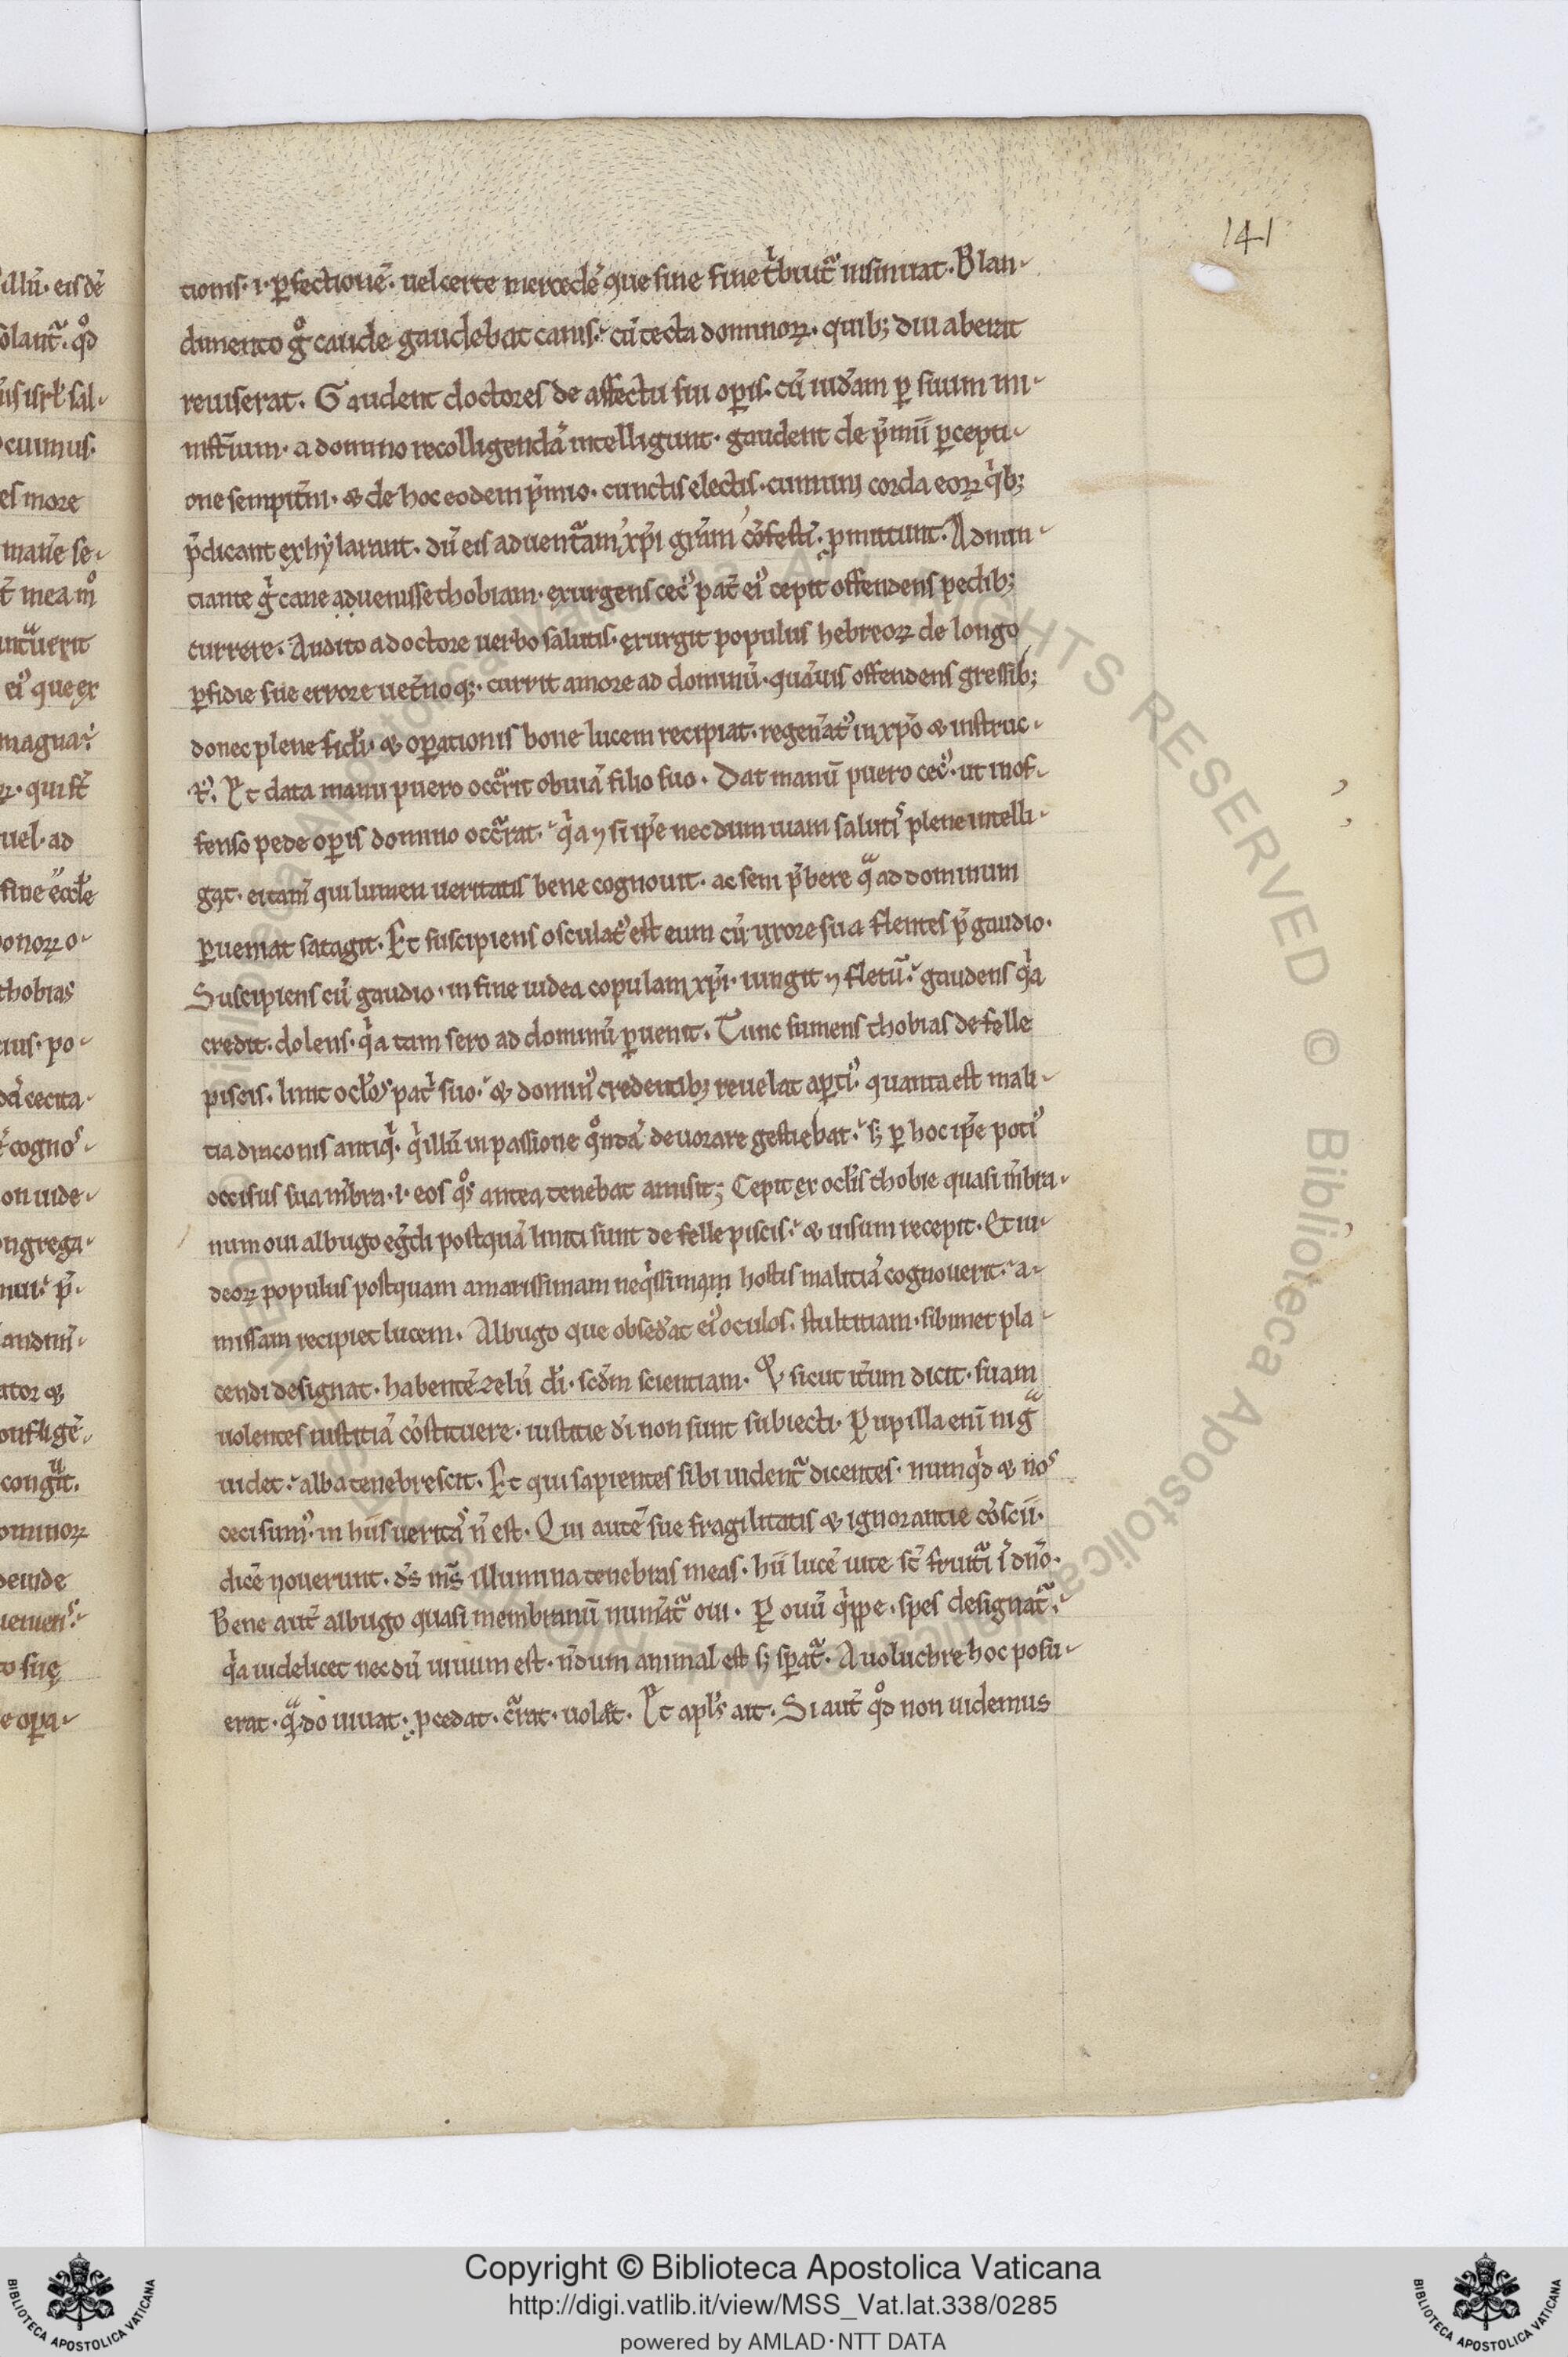 141
tionis·i·ꝑfectionē· uel certe mercedē que sine fine tͥbuit᷑ insinuat·Blan-
dimento gͦ caude gaudebat canis·cū tecta dominoꝝ· quibꝫ diu aberat
reuiserat. Gaudent doctores de affectu sui oꝑis· cū iudeam ꝑ suum mi-
nistīum· a domino recolligendā intelligunt· gaudent de p̄mii ꝑcepti-
one sempit̄ni· & de hoc eodem p̄mio· cunctis electis· cumum corda eoꝝ qͥbꝫ
p̄dicant exhẏlarant· dū eis aduentᷓam xp̄i gr̄am cōfesti· ꝓmittunt. Adnun-
ciante gͥ cane aduenisse thobiam· exurgens cecꝰ pat̄ eiꝰ cepit offendens pedibꝫ
currere. Audito a doctore uerbo salutis· exurgit populus hebreoꝝ de longo
ꝑfidie sue errore uet̄noqꝫ· currit amore ad dominū· quāuis offendens gressibꝫ
donec plene fidei· & oꝑationis bone lucem recipiat· regen̄atꝰ in xp̄o & instruc-
tꝰ. Et data manu puero occͬrit obuiā filio suo. Dat manū puero cecꝰ· ut inof-
fenso pede oꝑis domino occͬrat· qͥa ⁊ si ip̄e necdum uiam salutis plene intelli-
gat· ei tam̄ qui lumen ueritatis bene cognouit· acsem p̄bere qᷓ ad dominum
ꝑueniat satagit. Et suscipiens osculatꝰ est eum cū uxore sua flentes p̄ gaudio·
Suscipiens cū gaudio· in fine iudea copulam xp̄i· iungit ⁊ fletū· gaudens qͥa
credit· dolens· qͥa tam sero ad dominū ꝑuenit. Tunc sumens thobias de felle
piscis· liniit oculos patͥ suo· & dominꝰ credentibꝫ reuelat aꝑtiꝰ· quanta est mali-
tia draconis antiqͥ· qͥ illū in passione qͦndā deuorare gestiebat· sꝫ ꝑ hoc ip̄e potiꝰ
occisus sua mēbra·i·eos qͦs antea tenebat amisit; Cepit ex oclis thobie quasi mēbra-
num oui albugo eg̃di postquā liniti sunt de felle piscis· & uisum recepit· Et iu-
deoꝝ populus postquam amarissimam neqͥssimam hostis malitiā cognouerit· a-
missam recipiet lucem. Albugo que obsed̄at eiꝰ oculos· stultitiam·sibimet pla-
cendi designat· habentē zelū dī· scd̄m scientiam. Qͥ sicut it̄um dicit· suam
uolentes iustitiā cōstituere· iustitie dī non sunt subiecti· Pupilla enī nigᷓ
uidet· alba tenebrescit. Et qui sapientes sibi uident᷑ dicentes· numqͥd & nos
ceci sumꝰ· in hiis ueritas n̄ est. Qui autē sue fragilitatis & ignorantie cōscii·
dicē nouerunt· ds̄ ms̄ illumina tenebras meas· hii lucē uite st̄ fruitͣi ī dn̄o·
Bene aut̄ albugo quasi membranū num̄at᷑ oui. Per ouū qͥppe· spes designat᷑·
qͥa uidelicet necdū uiuum est· n̄dum animal est sꝫ sꝑat᷑. A uolucbre hoc posu-
erat· qᷓdo uiuat· ꝓcedat· cͬrat· uolat. Et apl̄s ait. Si aut̄ qͦd non uidemus
Copyright © Biblioteca Apostolica Vaticana
http://digi.vatlib.it/view/MSS_Vat.lat.338/0285
powered by AMLAD·NTT DATA